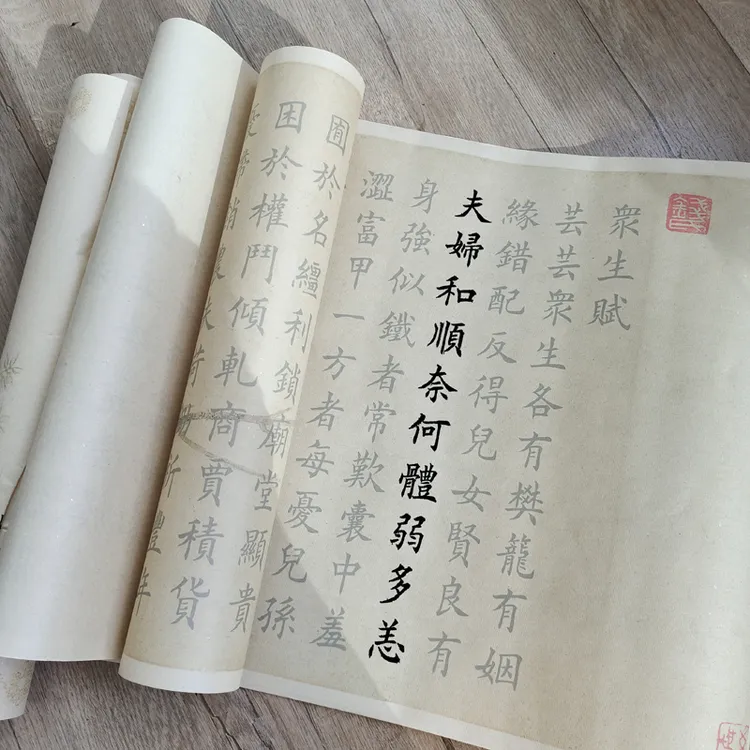 衆生賦
芸芸衆生各有樊籠有姻
緣錯配反得兒女賢良有
夫婦和順奈何體弱多恙
身強似鐵者常歎囊中羞
澀富甲一方者每憂兒孫
囿於名繮利鎖廟堂顯貴
困於權鬥傾軋商賈積貨
豐年